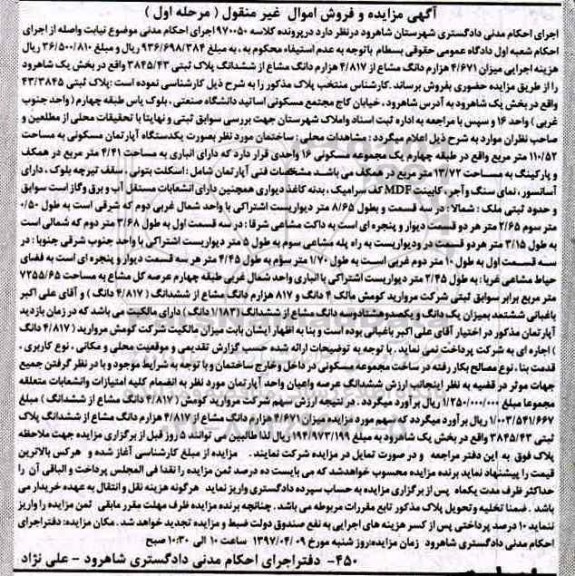 آگهی مزایده و فروش اموال غیر منقول ( مرحله اول )
اجرای احکام مدنی دادگستری شهرستان شاهرود درنظر دارد درپرونده کلاسه ۹۷۰۰۵۰ اجرای احکام مدنی موضوع نیابت واصله از اجرای
احکام شعبه اول دادگاه عمومی حقوقی بسطام باتوجه به عدم استیفاء محکوم به ، به مبلغ ۹۳۶/۶۹۸/۳۸۴ ریال و مبلغ ۳۶/۵۰۰/۸۱۰ ریال
هزینه اجرایی میزان ۴/۶۷۱ هزارم دانگ مشاع از ۴/۸۱۷ هزارم دانگ مشاع از ششدانگ پلاک ثبتی ۳۸۴۵/۴۳ واقع در بخش یک شاهرود
را از طریق مزایده حضوری بفروش برساند .کارشناس منتخب پلاک مذکور را به شرح ذیل کارشناسی نموده است :پلاک ثبتی ۴۳/۳۸۴۵
واقع در بخش یک شاهرود به آدرس شاهرود ، خیابان کاج مجتمع مسکونی اساتید دانشگاه صنعتی ، بلوک یاس طبقه چهارم ( واحد جنوب
غربی ) واحد ۱۴ و سپس با مراجعه به اداره ثبت اسناد واملاک شهرستان جهت بررسی سوابق ثبتی و نهایتا با تحقیقات محلی از مطلعین و
صاحب نظران موارد به شرح ذیل اعلام میگردد : مشاهدات محلی : ساختمان مورد نظر بصورت یکدستگاه آپارتمان مسکونی به مساحت
۱۱۰/۵۲ متر مربع واقع در طبقه چهارم یک مجموعه مسکونی ۱۶ واحدی قرار دارد که دارای انباری به مساحت ۴/۴۱ متر مربع در همکف
و پارکینگ به مساحت ۱۳/۷۲ متر مربع در همکف می باشد مشخصات فنی آپارتمان شامل : اسکلت بتونی ، سقف تیرچه بلوک ، دارای
آسانسور ، نمای سنگ وآجر ، کابینت MDF کف سرامیک ، بدنه کاغذ دیواری همچنین دارای انشعابات مستقل آب و برق وگاز است سوابق
و حدود ثبتی ملک : شمالا : در سه قسمت و بطول ۸/۶۵ متر دیواریست اشتراکی با واحد شمال غربی دوم که شرقی است به طول ۰/۵۰
متر سوم ۲/۶۵ متر هر دو قسمت دیوار و پنجره ای است به داکت مشاعی شرقا : در سه قسمت اول به طول ۳/۶۸ متر دوم که شمالی است
به طول ۳/۱۵ متر هردو قسمت در ودیواریست به راه پله مشاعی سوم به طول ۵ متر دیواریست اشتراکی با واحد جنوب شرقی جنوبا : در
سه قسمت اول به طول ۱۰ متر دوم غربی است به طول ۱/۷۰ متر سوم به طول ۴/۴۵ متر هر سه قسمت دیوار و پنجره ای است به فضای
حیاط مشاعی غربا : به طول ۳/۴۵ متر دیواریست اشتراکی با انباری واحد شمال غربی طبقه چهارم عرصه کل مشاع به مساحت ۷۲۵۵/۶۵
متر مربع برابر سوابق ثبتی شرکت مروارید کومش مالک ۴ دانگ و ۸۱۷ هزارم دانگ مشاع از ششدانگ ( ۴/۸۱۷ دانگ ) و آقای علی اکبر
باغبانی ششتمد بمیزان یک دانگ و یکصدوهشتادوسه دانگ مشاع از ششدانگ (۱/۱۸۳ دانگ ) دارای مالکیت می باشد که در زمان بازدید
آپارتمان مذکور در اختیار آقای علی اکبر باغبانی بوده است و بنا به اظهار ایشان بابت میزان مالکیت شرکت کومش مروارید ( ۴/۸۱۷ دانگ
) اجاره ای به شرکت پرداخت نمی نماید . با توجه به توضیحات ارائه شده حسب گزارش تقدیمی و موقعیت محلی و مکانی ، نوع کاربری ،
قدمت بنا ، نوع مصالح بکار رفته در ساخت مجموعه مسکونی در داخل وخارج ساختمان و با توجه به شرایط موجود و با در نظر گرفتن جمیع
جهات موثر در قضیه به نظر اینجانب ارزش ششدانگ عرصه واعیان واحد آپارتمان مورد نظر به انضمام کلیه امتیازات وانشعابات متعلقه
مجموعا مبلغ ۱/۲۵۰/۰۰۰/۰۰۰ ریال بر آورد میگردد . در نتیجه ارزش سهم شرکت مروارید کومش ( ۴/۸۱۷ دانگ مشاع از ششدانگ ) مبلغ
۱/۰۰۳/۵۴۱/۶۶۷ ریال برآورد میگردد که سهم مورد مزایده میزان ۴/۶۷۱ هزارم دانگ مشاع از ۴/۸۱۷ هزارم دانگ مشاع از ششدانگ پلاک
ثبتی ۳۸۴۵/۴۳ واقع در بخش یک شاهرود به مبلغ ۹۷۳/۱۹۹/۱۹۴ ریال لذا طالبین می توانند ۵ روز قبل از برگزاری مزایده جهت ملاحظه
پلاک فوق به این دفتر مراجعه و در صورت تمایل در مزایده شرکت نمایند . مزایده از مبلغ کارشناسی آغاز شده و هرکس بالاترین
قیمت را پیشنهاد نماید برنده مزایده محسوب خواهدشد که می بایست ده درصد ثمن مزایده را نقدا فی المجلس پرداخت و الباقی آن را
حداکثر ظرف مدت یکماه پس از برگزاری مزایده به حساب سپرده دادگستری واریز نماید هرگونه هزینه نقل و انتقال به عهده خریدار می
باشد . ضمنا تخلیه وتحویل پلاک مذکور تابع مقررات مربوطه می باشد. چنانچه برنده مزایده ظرف مهلت مقرر مابقی ثمن مزایده را واریز
ننماید ۱۰ درصد پرداختی پس از کسر هزینه های اجرایی به نفع صندوق دولت ضبط و مزایده تجدید خواهد شد . مکان مزایده: دفتراجرای
احکام مدنی شاهرود زمان مزایده:روز شنبه مورخ ۱۳۹۷/۰۴/۰۹ ساعت ۱۰ الی ۱۰:۳۰ صبح
۴۵۰- دفتراجرای احکام مدنی دادگستری شاهرود – علی نژاد